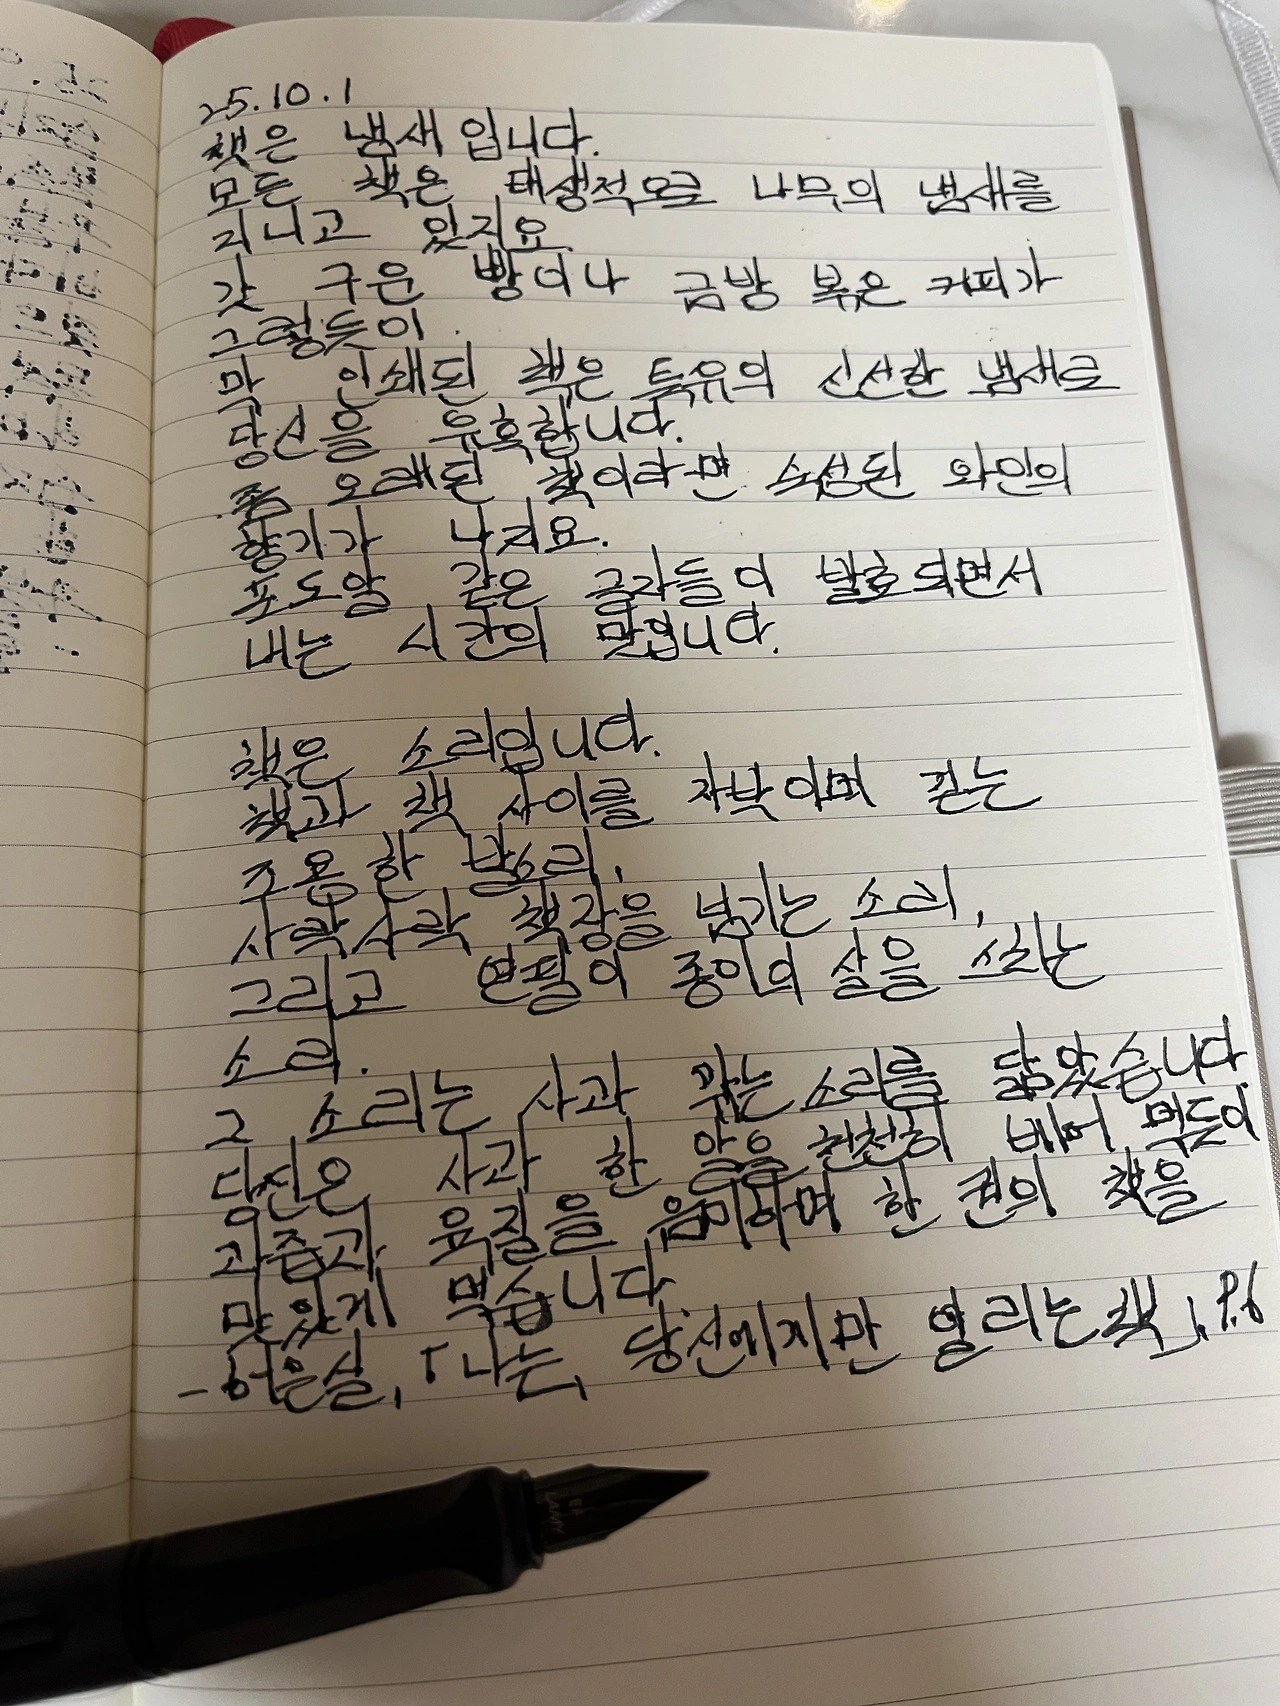 25.10.1
책은 냄새입니다.
모든 책은 태생적으로 나무의 냄새를
지니고 있지요.
갓 구운 빵이나 금방 볶은 커피가
그렇듯이.
막 인쇄된 책은 특유의 신선한 냄새로
당신을 유혹합니다.
좀 오래된 책이라면 숙성된 와인의
향기가 나지요.
포도알 같은 글자들이 발효되면서
내는 시간의 맛입니다.
책은 소리입니다.
책과 책 사이를 자박이며 걷는
조용한 발소리,
사락사락 책장을 넘기는 소리,
그리고 연필이 종이의 살을 스치는
소리.
그 소리는 사과 깎는 소리를 닮았습니다.
당신은 사과 한 알을 천천히 베어 먹듯이
과즙과 육질을 음미하며 한 권의 책을
맛있게 먹습니다
- 허은실, 「나는, 당신에게만 열리는 책」, P.6